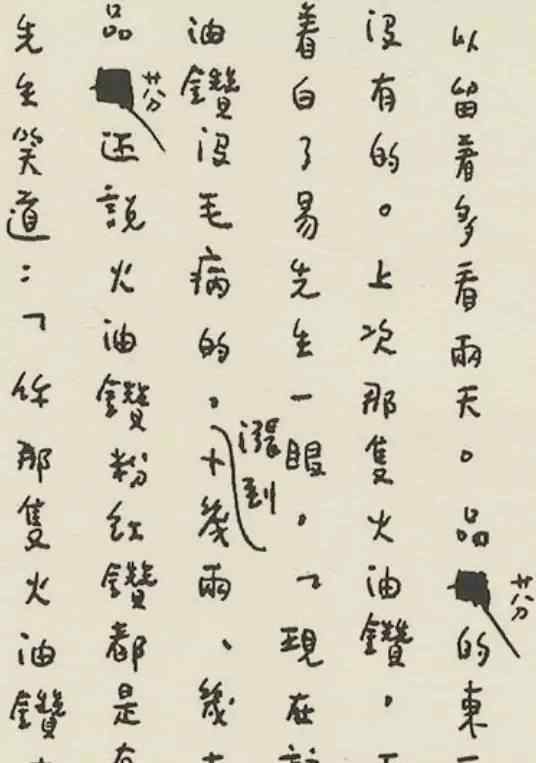 以留着多看兩天。品芬的東
没有的。上次那隻火油鑽，不
着白了易先生一眼，「現在
油鑽没毛病的，漲到十幾兩、幾十
品芬还說火油鑽粉红鑽都是有
先生笑道：「你那隻火油鑽